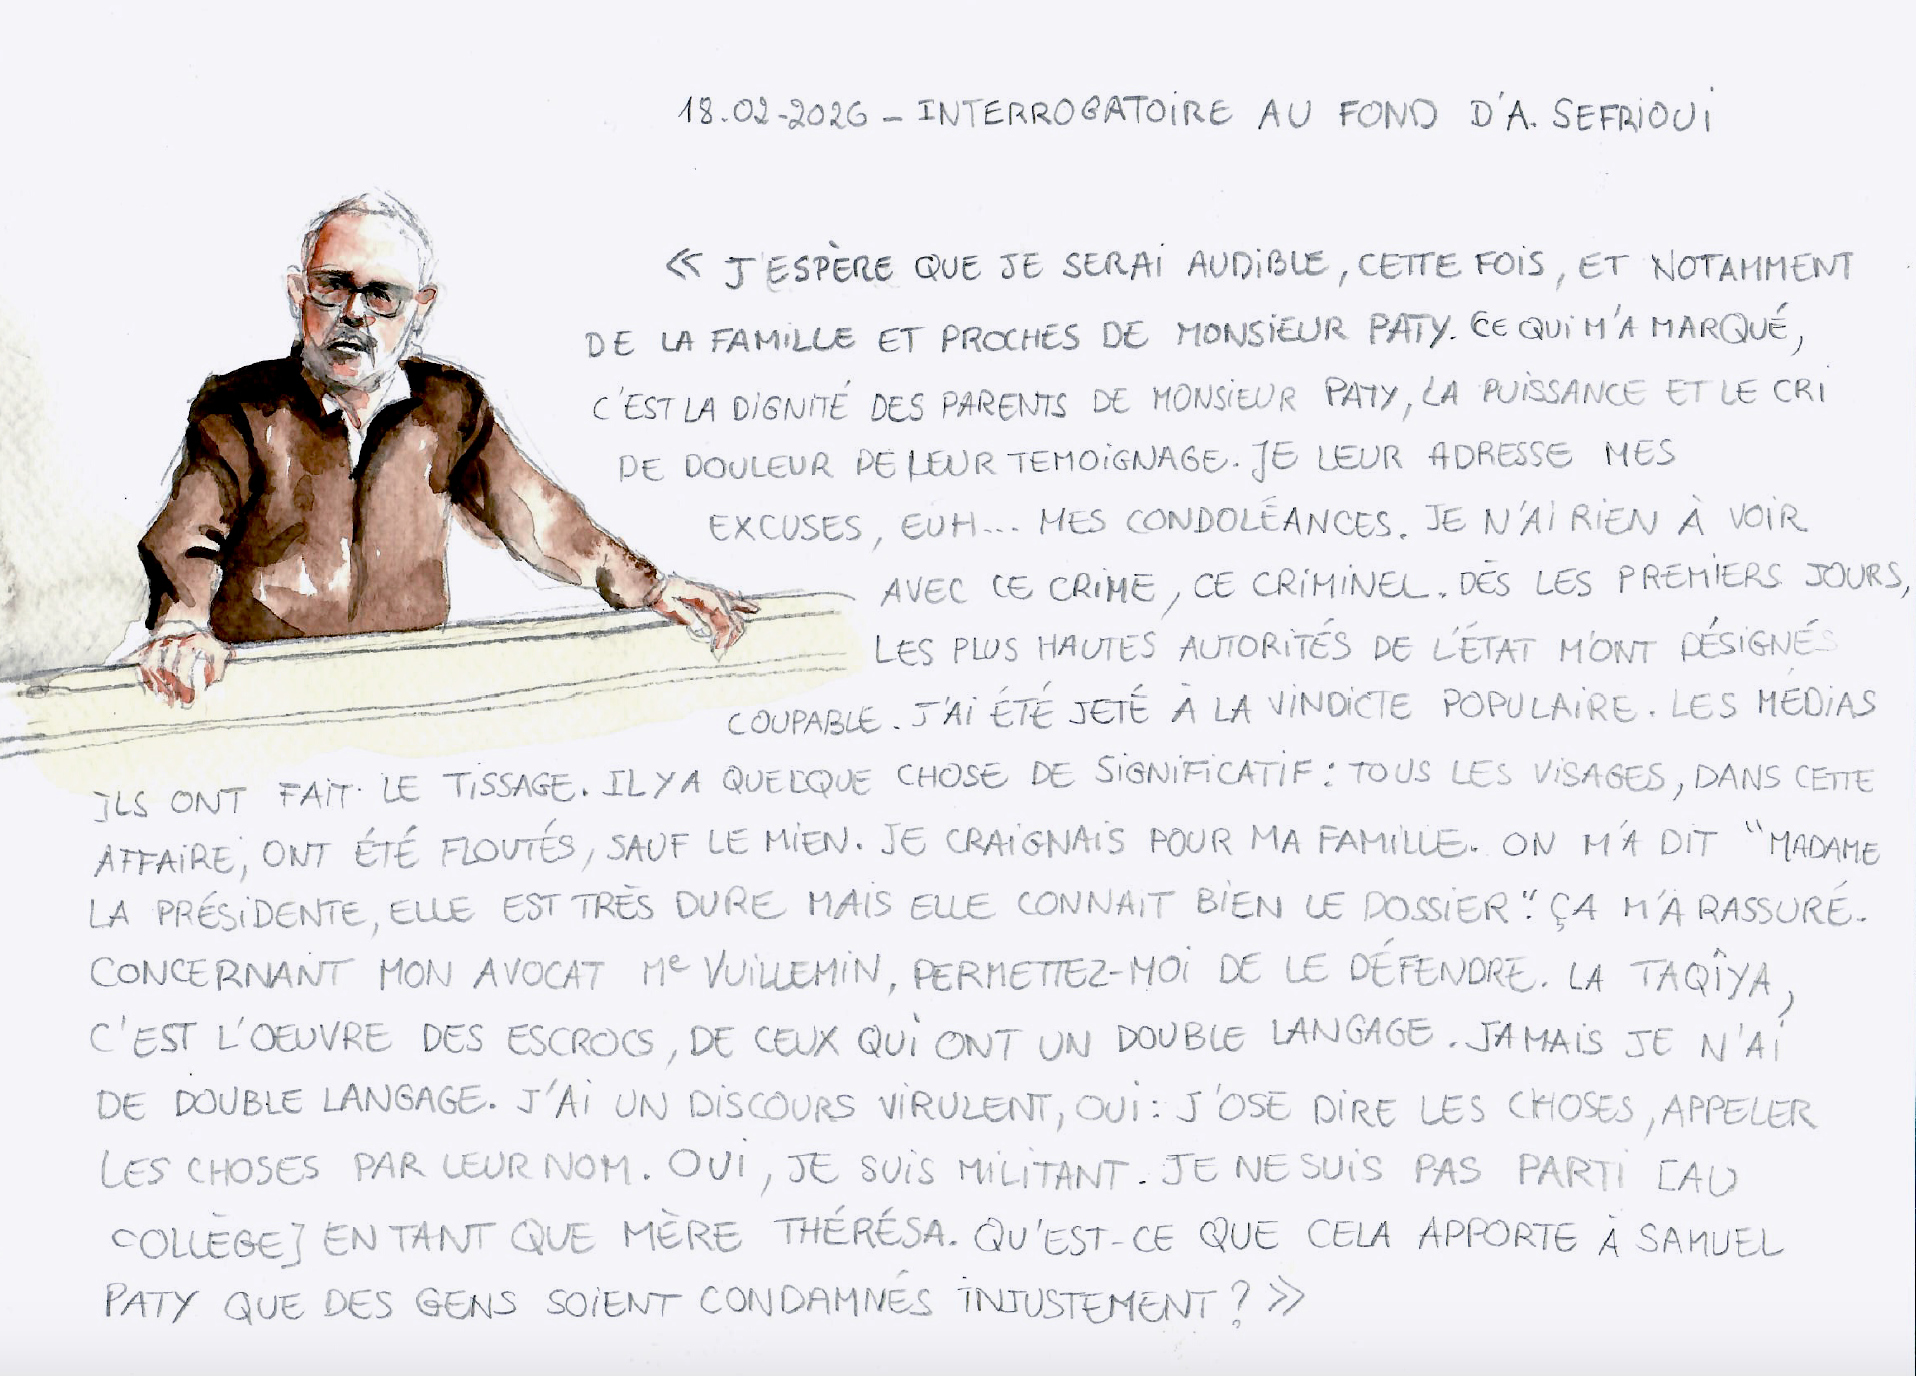 18.02-2026 – INTERROGATOIRE AU FOND D'A. SEFRIOUI
« J'ESPÈRE QUE JE SERAI AUDIBLE, CETTE FOIS, ET NOTAMMENT
DE LA FAMILLE ET PROCHES DE MONSIEUR PATY. CE QUI M'A MARQUÉ,
C'EST LA DIGNITÉ DES PARENTS DE MONSIEUR PATY, LA PUISSANCE ET LE CRI
DE DOULEUR DE LEUR TEMOIGNAGE. JE LEUR ADRESSE MES
EXCUSES, EUH... MES CONDOLÉANCES. JE N'AI RIEN À VOIR
AVEC CE CRIME, CE CRIMINEL. DÈS LES PREMIERS JOURS,
LES PLUS HAUTES AUTORITÉS DE L'ÉTAT M'ONT DÉSIGNÉS
COUPABLE. J'AI ÉTÉ JETÉ À LA VINDICTE POPULAIRE. LES MÉDIAS
ILS ONT FAIT LE TISSAGE. IL Y A QUELQUE CHOSE DE SIGNIFICATIF : TOUS LES VISAGES, DANS CETTE
AFFAIRE, ONT ÉTÉ FLOUTÉS, SAUF LE MIEN. JE CRAIGNAIS POUR MA FAMILLE. ON M'A DIT "MADAME
LA PRÉSIDENTE, ELLE EST TRÈS DURE MAIS ELLE CONNAIT BIEN LE DOSSIER". ÇA M'A RASSURÉ.
CONCERNANT MON AVOCAT Me VUILLEMIN, PERMETTEZ-MOI DE LE DÉFENDRE. LA TAQÎYA,
C'EST L'OEUVRE DES ESCROCS, DE CEUX QUI ONT UN DOUBLE LANGAGE. JAMAIS JE N'AI
DE DOUBLE LANGAGE. J'AI UN DISCOURS VIRULENT, OUI : J'OSE DIRE LES CHOSES, APPELER
LES CHOSES PAR LEUR NOM. OUI, JE SUIS MILITANT. JE NE SUIS PAS PARTI [AU
COLLÈGE] EN TANT QUE MÈRE THÉRÉSA. QU'EST-CE QUE CELA APPORTE À SAMUEL
PATY QUE DES GENS SOIENT CONDAMNÉS INJUSTEMENT ? »